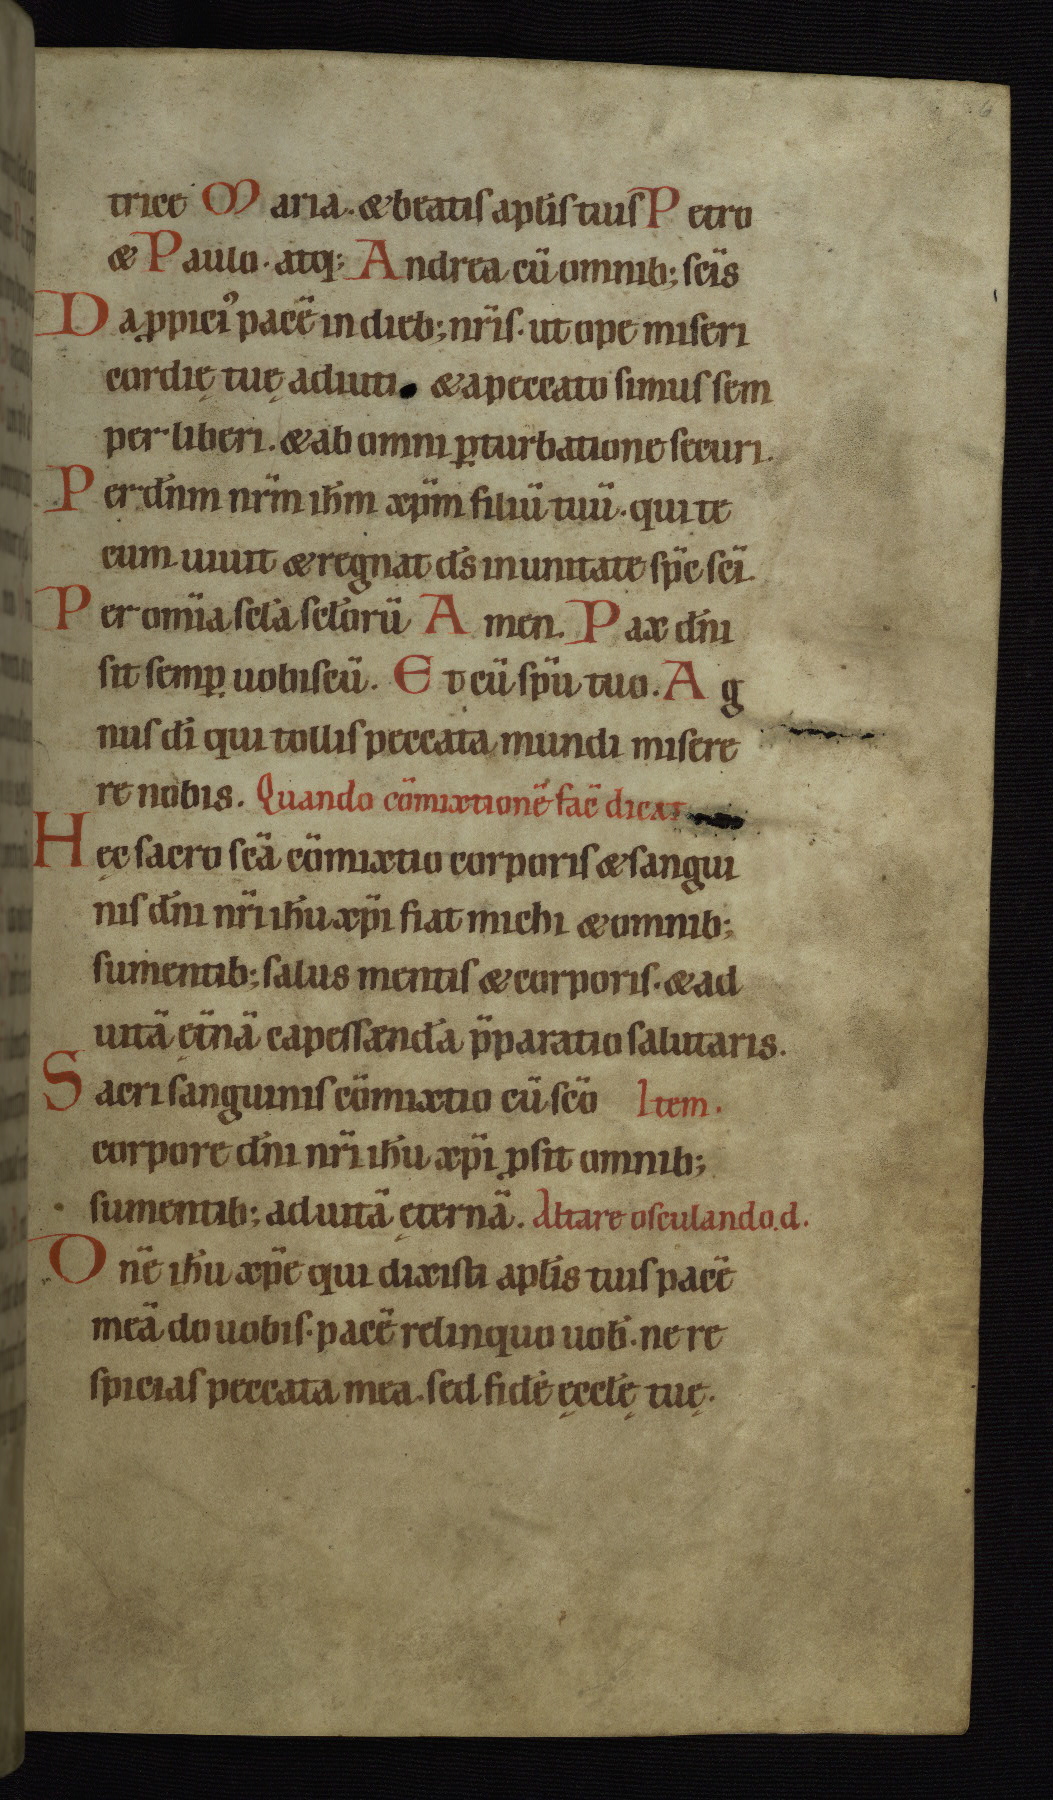 trice Maria. & beatis aplis tuis Petro
& Paulo. atq; Andrea cū omnib; scīs
Da ppiciꝰ pacē in dieb; nrīs. ut ope miseri
cordię tuę adiuti. & a peccato simus sem
per liberi. & ab omni ꝑturbatione securi.
Per dn̄m nr̄m ih̄m xp̄m filiū tuū. qui te
cum uiuit & regnat ds̄ in unitate sp̄c scī.
Per om̄ia scła scłorū Amen. Pax dn̄i
sit semꝑ uobiscū. Et cū sp̄u tuo. Ag
nus dī qui tollis peccata mundi misere
re nobis. Quando cōmixtionē fac̄ dicat
Hęc sacro scā cōmixtio corporis & sangui
nis dn̄i nr̄i ih̄u xp̄i fiat michi & omnib;
sumentib; salus mentis & corporis. & ad
uitā ęt̄nā capessænda p̄paratio salutaris.
Sacri sanguinis cōmixtio cū scō Item.
corpore dn̄i nr̄i ih̄u xp̄i ꝓsit omnib;
sumentib; ad uitā ęternā. Altare osculando.d.
Dn̄e ih̄u xp̄e qui dixisti aplis tuis pacē
meā do uobis. pacē relinquo uob̄. ne re
spicias peccata mea. sed fidē ęcclę tuę.